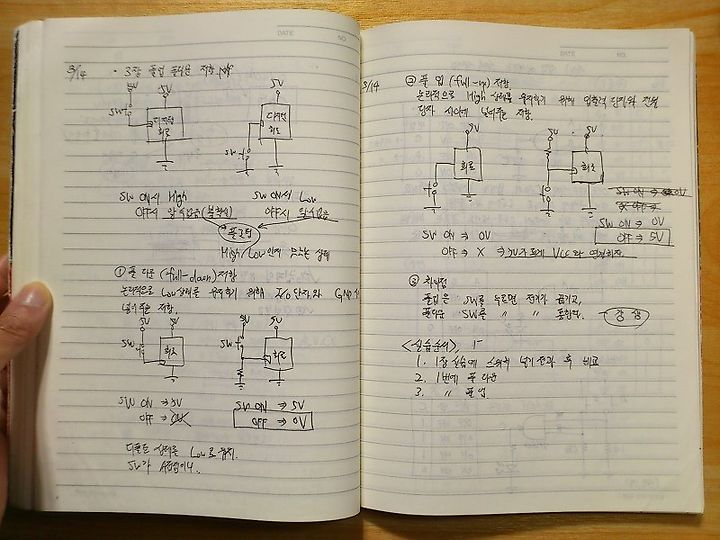 3/14 · 3장 풀업 풀다운 저항
5V 5V 5V
SW
디지털
회로
디지털
회로
SW
SW ON시 High
OFF시 알수없음(불확실)
SW ON시 Low
OFF시 알수없음
플로팅
High/Low 안에 뜨는 상태
① 풀 다운 (full-down) 저항
논리적으로 Low 상태를 유지하기 위해 I/O 단자와 GND
넣어주는 저항.
5V 5V 5V 5V
SW
회로
SW
회로
SW ON ⇒ 5V
OFF ⇒ 0V
SW ON ⇒ 5V
OFF ⇒ 0V
디폴트 상태를 Low로 유지.
SW가
3/14 ② 풀 업 (full-up) 저항
논리적으로 High 상태를 유지하기 위해 입출력 단자와 전원
단자 사이에 넣어주는 저항.
5V 5V 5V
회로
회로
SW ON ⇒ 0V
OFF ⇒
SW ON ⇒ 0V
OFF ⇒ 5V
SW ON ⇒ 0V
OFF ⇒ X ⇒ Vcc와 연결하자
③ 차이점
풀업은 SW를 누르면 전기가 끊기고,
풀다운 SW를 〃 〃 통한다.
<실습순서>
1. 1장 실습에 스위치 넣기 전과 후 비교
2. 1번에 풀 다운
3. 〃 풀 업